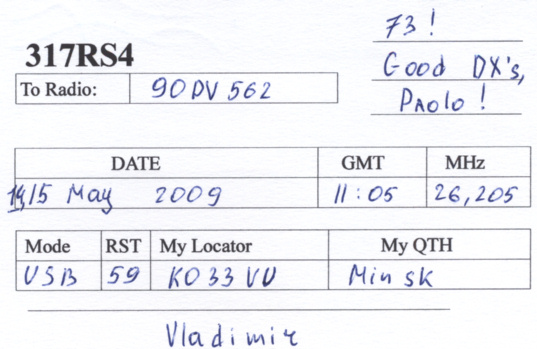 73!
Good DX's,
Paolo!
317RS4
To Radio: 90DV562
DATE GMT MHz
14/15 May 2009 11:05 26,205
Mode RST My Locator My QTH
USB 59 KO33VU Minsk
Vladimir